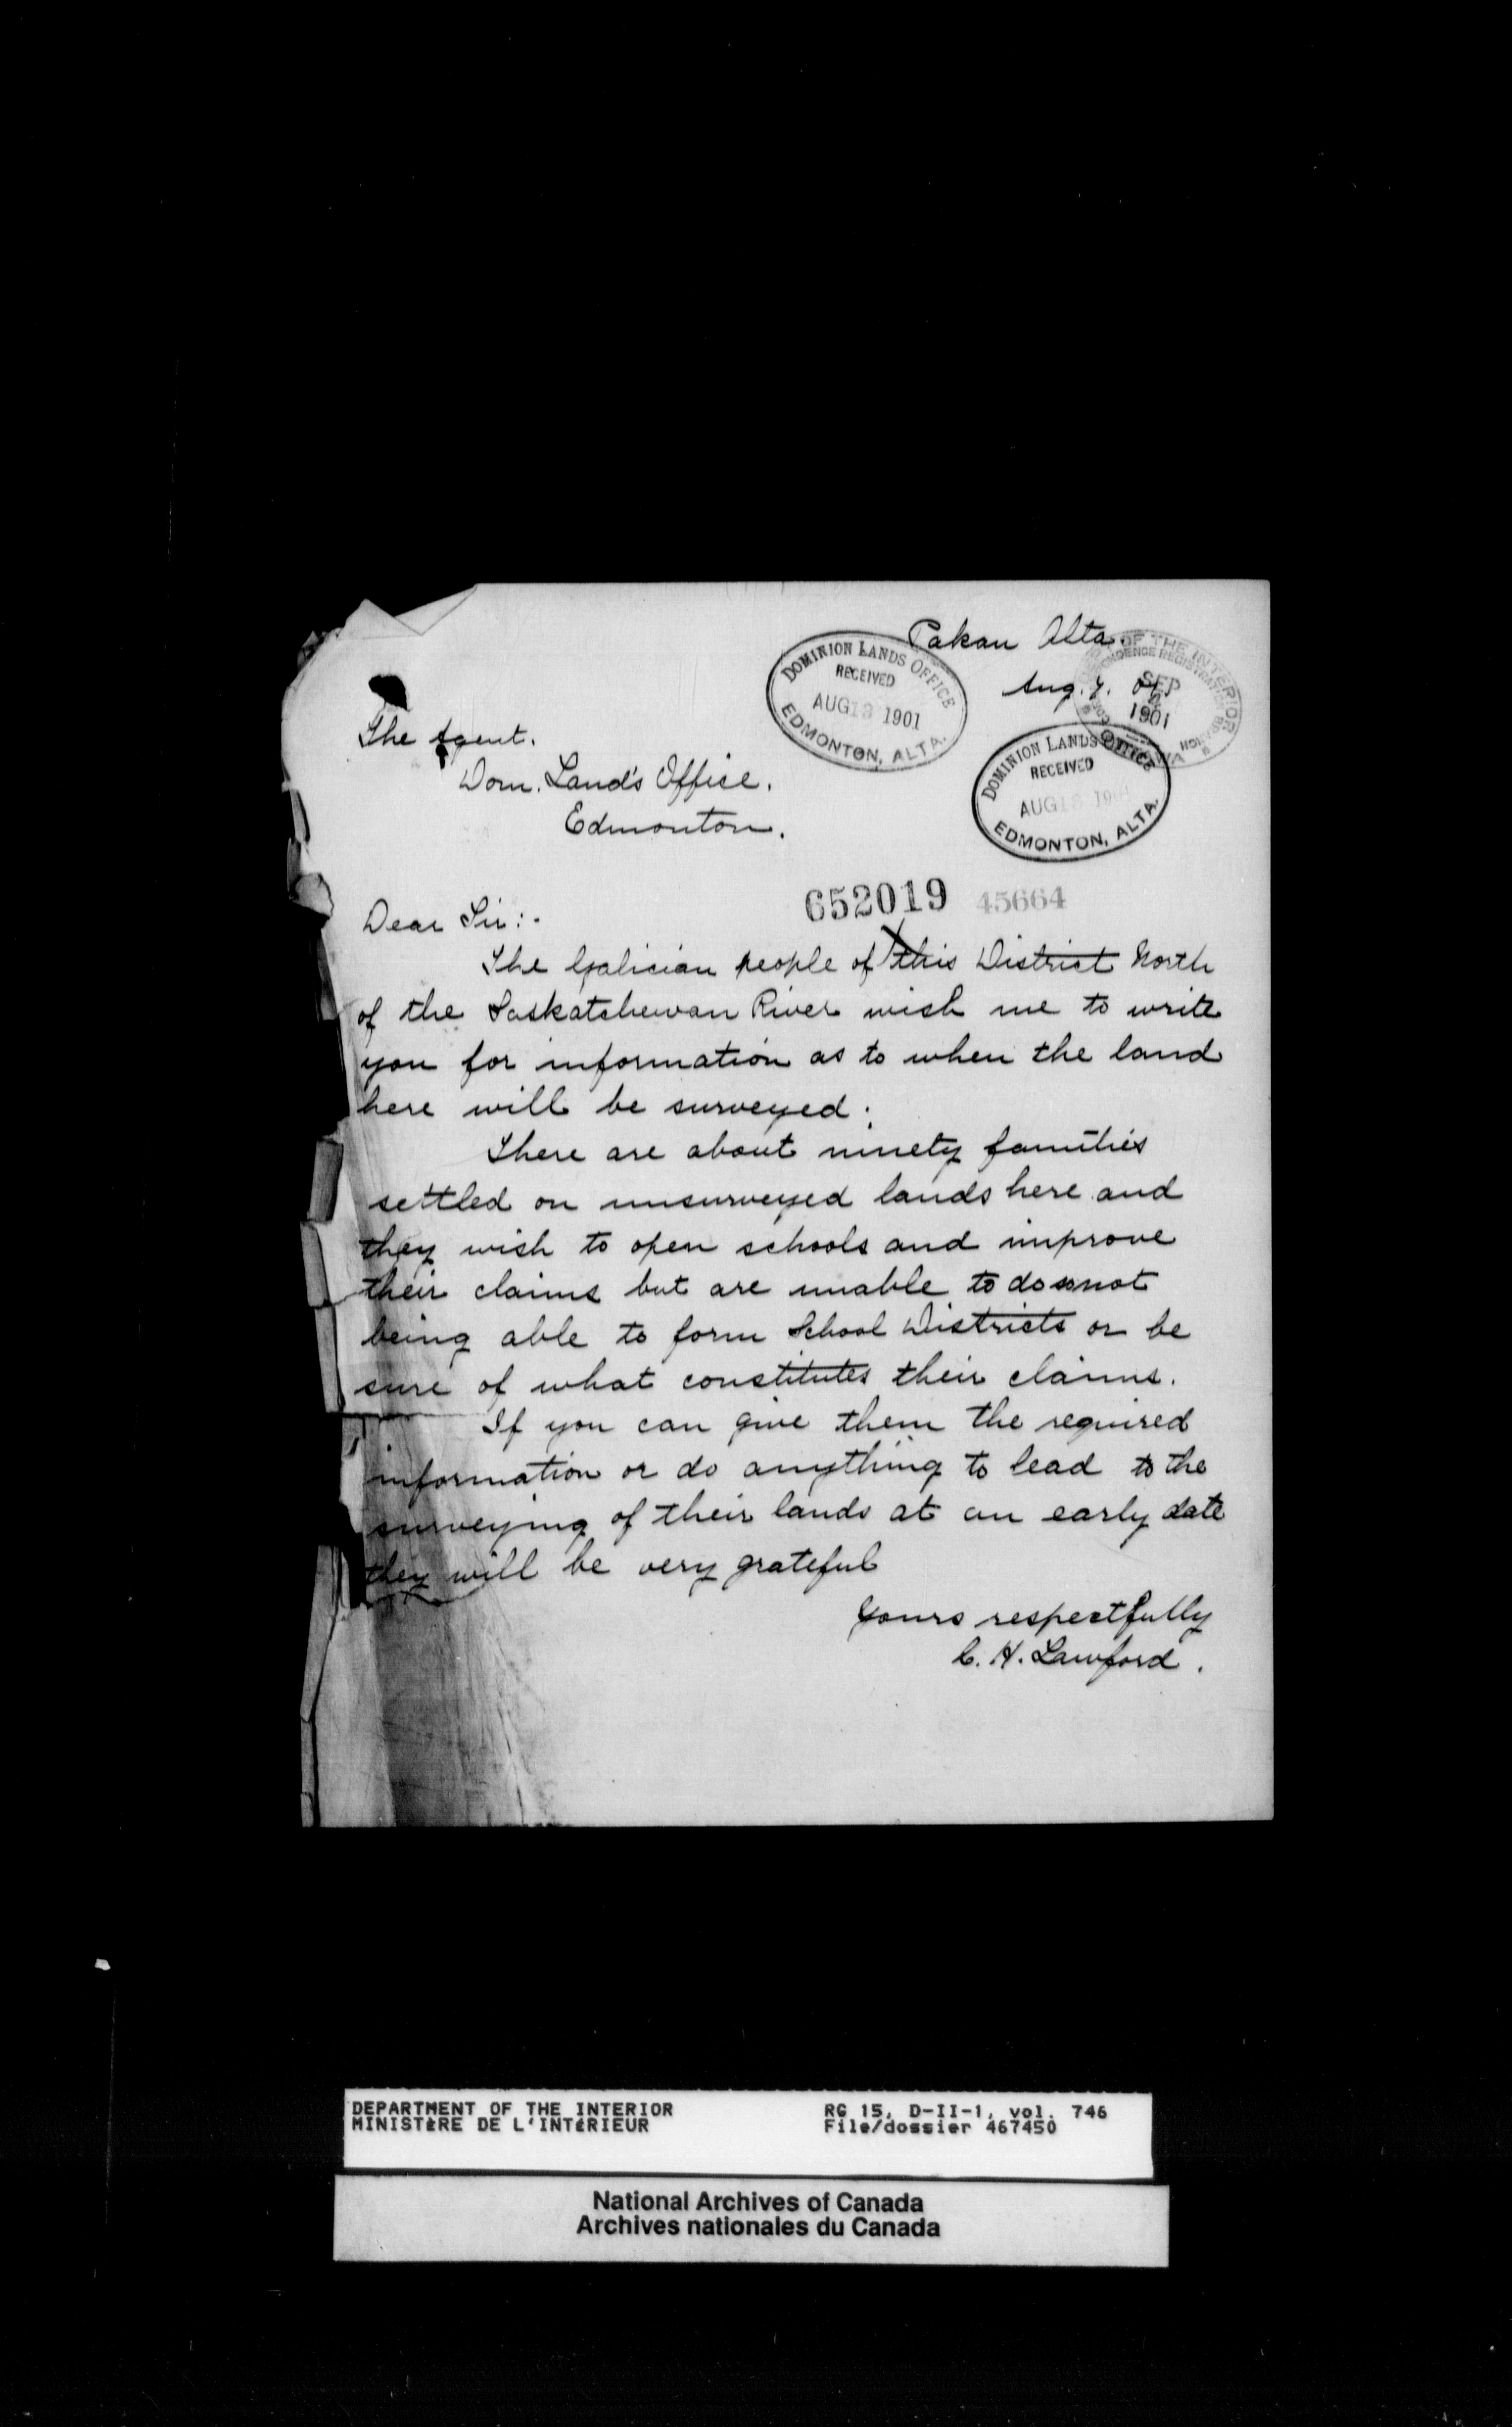 Pakan Alta.
Aug. 7. 01
DOMINION LANDS OFFICE
RECEIVED
AUG 13 1901
EDMONTON, ALTA.
OF THE INTERIOR
SEP 2
1901
DOMINION LANDS OFFICE
RECEIVED
AUG 13 19
EDMONTON, ALTA.
The Agent.
Dom. Land's Office.
Edmonton.
652019 45664
Dear Sir:-
The Galician people of this District North
of the Saskatchewan River wish me to write
you for information as to when the land
here will be surveyed.
There are about ninety families
settled on unsurveyed lands here and
they wish to open schools and improve
their claims but are unable to do so not
being able to form School Districts or be
sure of what constitutes their claims.
If you can give them the required
information or do anything to lead to the
surveying of their lands at an early date
they will be very grateful
Yours respectfully
C. H. Lawford.
DEPARTMENT OF THE INTERIOR RG 15, D-II-1, vol. 746
MINISTÈRE DE L'INTÉRIEUR File/dossier 467450
National Archives of Canada
Archives nationales du Canada